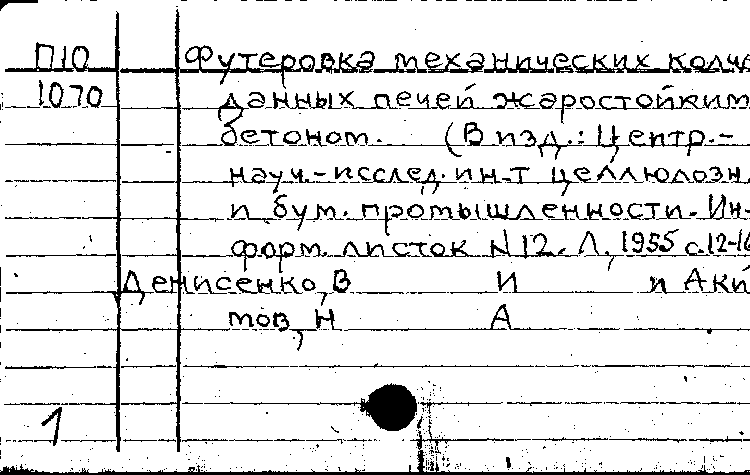 П10 Футеровка механических колче
1070 данных печей жаростойким
бетоном. (В изд.: Центр.-
науч.-исслед. ин-т целлюлозн.
и бум. промышленности. Ин-
форм. листок N 12. Л., 1955 с.12-16
Денисенко, В И и Аки
мов, Н А
1